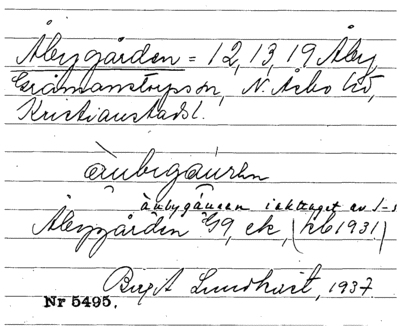 Åbygården = 12, 13, 19 Åby,
Gråmanstorps sn, N. Åsbo hd,
Kristianstads l.
àubygáurən
àubygáuaan iakttaget av I-s
Åbygården G9, ek, (hb 1931)
Birgit Lundkvist, 1937.
Nr 5495.